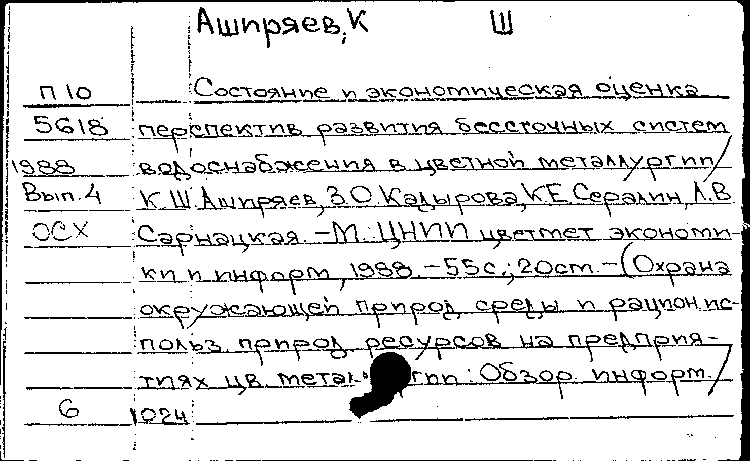 Аширяев, К Ш
П 10 Состояние и экономическая оценка
5618 перспектив развития бессточных систем
1988 водоснабжения в цветной металлургии/
Вып. 4 К.Ш.Аширяев, З.О.Кадырова, К.Е.Сералин, Л.В.
ОСХ Сарнацкая. -М.: ЦНИИ цветмет экономи-
ки и информ, 1988. -55с.; 20см. -(Охрана
окружающей природ. среды и рацион ис-
польз. природ. ресурсов на предприя-
тиях цв. метал гии: Обзор. информ./
6 1024